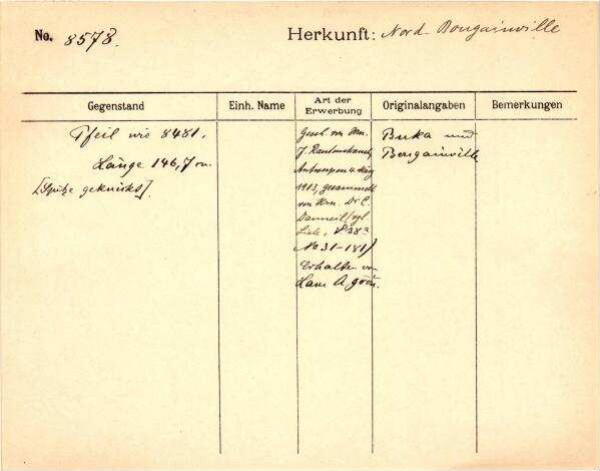 No. 8578.
Herkunft: Nord-Bougainville
Gegenstand
Einh. Name
Art der Erwerbung
Originalangaben
Bemerkungen
Pfeil wie 8481.
Länge 146,7 cm.
[Spitze geknickt].
Gesch. von Hrn.
J.
Antwerpen 4. Aug
1913, gesammelt
von Hrn. Dr. C.
(vgl.
Liste,
No 31-181)
Erhalten von
Hans A.
Buka und
Bougainville